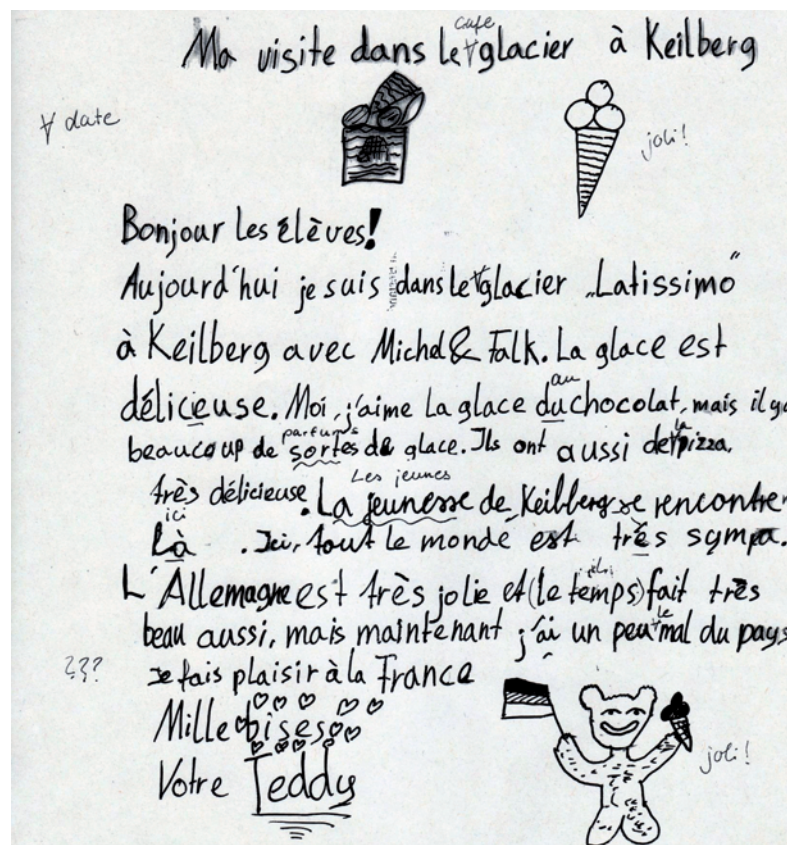 cafe
Ma visite dans le glacier à Keilberg
∀ date
joli!
Bonjour les élèves!
Aujourd'hui je suis dans le glacier „Latissimo"
à Keilberg avec Michel & Falk. La glace est
au
déliceuse. Moi, j'aime la glace du chocolat, mais il ya
parfums la
beaucoup de sortes de glace. Ils ont aussi de pizza,
Les jeunes
très délicieuse. La jeunesse de Keilberg se rencontre
ici
Là. Ici, tout le monde est très sympa.
L'Allemagne est très jolie et (le temps) fait très
le
beau aussi, mais maintenant j'ai un peu mal du pays
??? Je fais plaisir à la France
Mille bises
joli!
Votre Teddy